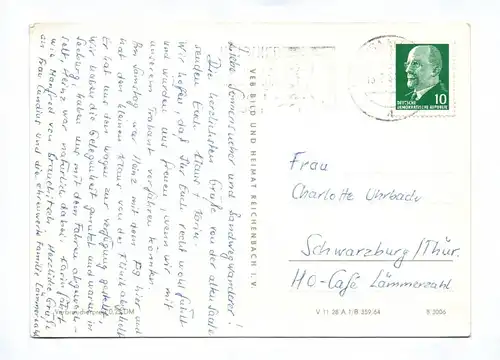 Liebe Sonnensucher und Sandwegwanderer!
Die herzlichsten Grüße von der
senden Euch Klaus + Karin
Wir hoffen, daß Ihr Euch recht wohl fühlt
und würden uns freuen, wenn wir mit
unserem Trabant vorfahren könnten.
Am Samstag war Heinz mit dem hier und
hat den kleinen Klaus von der Klinik abgeholt
Er hat uns den Wagen zur Verfügung gestellt,
Wir haben die Gelegenheit genutzt und waren in
Seeburg, haben uns mit dem Fahren abgewech-
selt, Heinz war natürlich dabei. Karin fährt
wie Manfred von Brauchitsch. Herzliche Grüße
an Frau und die ehrenwerte Familie Lämmerzahl
VEB BILD UND HEIMAT REICHENBACH I. V.
DEUTSCHE
DEMOKRATISCHE REPUBLIK
10
Frau
Charlotte Uhrbach
Schwarzburg/Thür.
HO-Café Lämmerzahl
V 11 28 A 1/B 359/64
B 2006